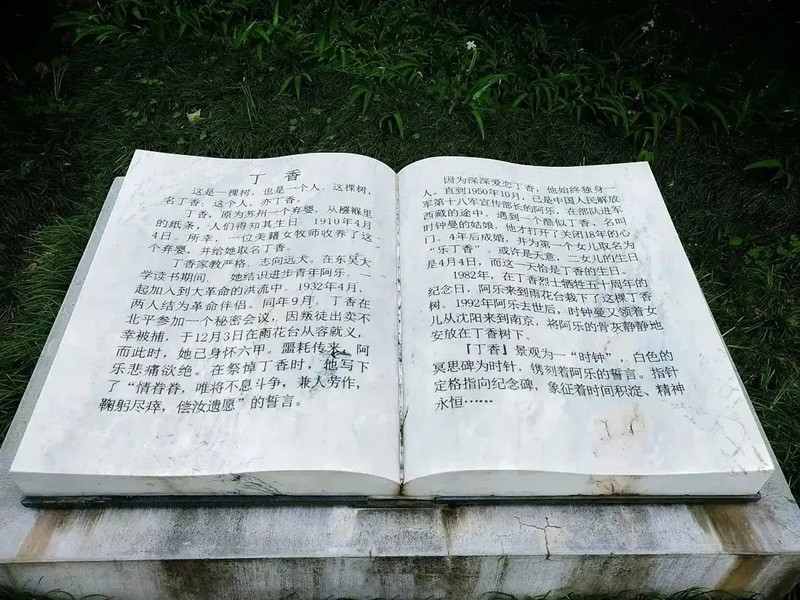 丁 香
这是一棵树，也是一个人，这棵树，
名丁香；这个人，亦丁香。
丁香，原为苏州一个弃婴，从襁褓里
的纸条，人们得知其生日：1910年4月
4日。所幸，一位美籍女牧师收养了这
个弃婴，并给她取名丁香。
丁香家教严格，志向远大。在东吴大
学读书期间，她结识进步青年阿乐，一
起加入到大革命的洪流中。1932年4月，
两人结为革命伴侣。同年9月，丁香在
北平参加一个秘密会议，因叛徒出卖不
幸被捕，于12月3日在雨花台从容就义，
而此时，她已身怀六甲。噩耗传来，阿
乐悲痛欲绝。在祭悼丁香时，他写下
了“情眷眷，唯将不息斗争，兼人劳作，
鞠躬尽瘁，偿汝遗愿”的誓言。
因为深深爱恋丁香，他始终独身一
人。直到1950年10月，已是中国人民解放
军第十八军宣传部长的阿乐，在部队进军
西藏的途中，遇到一个酷似丁香、名叫
时钟曼的姑娘，他才打开了关闭18年的心
门。4年后成婚，并为第一个女儿取名为
“乐丁香”。或许是天意，二女儿的生日
是4月4日，而这一天恰是丁香的生日。
1982年，在丁香烈士牺牲五十周年的
纪念日，阿乐来到雨花台栽下了这棵丁香
树。1992年阿乐去世后，时钟曼又领着女
儿从沈阳来到南京，将阿乐的骨灰静静地
安放在丁香树下。
【丁香】景观为一“时钟”，白色的
冥思碑为时针，镌刻着阿乐的誓言。指针
定格指向纪念碑，象征着时间积淀、精神
永恒……